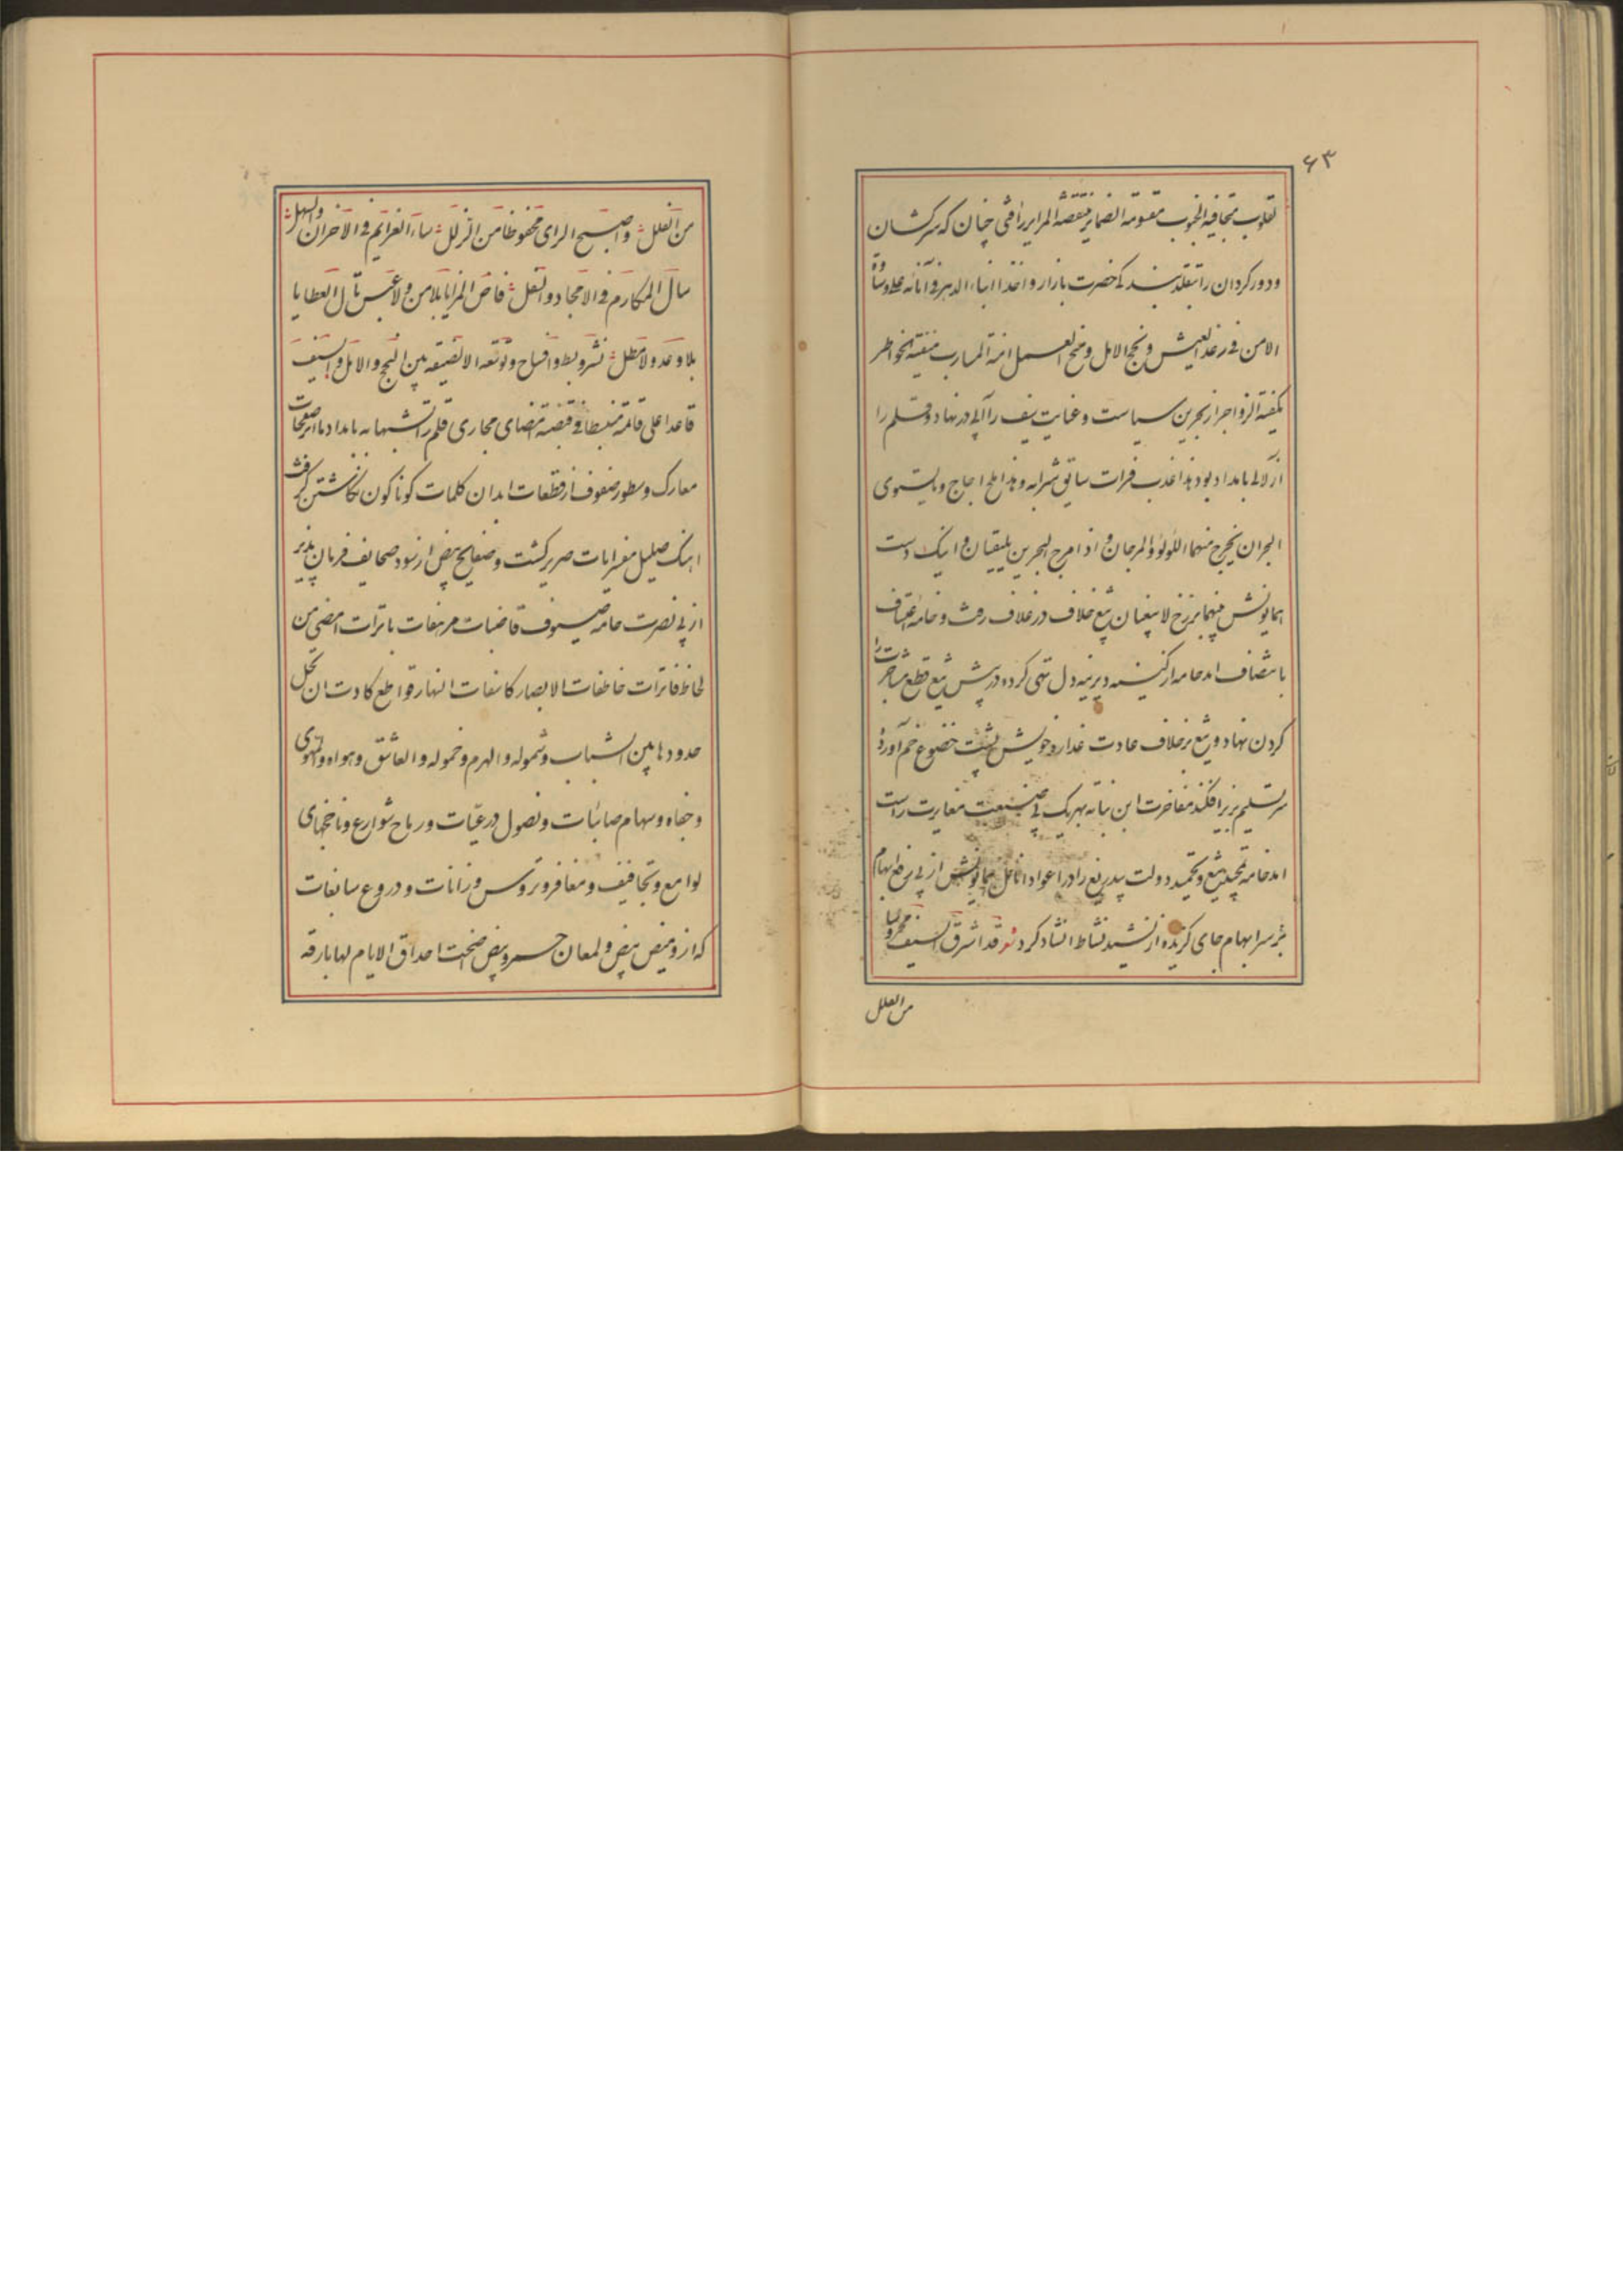 ۶۳
قلوب متجافیة الجنوب مقسومة الضمایر منتقضة المرایر راقی چنان که سرکشان
و دور کردان را بقلد بند کی حضرت باز آرد و اخذ ابناء الدهر فی آنائه
الامن فی رغد العیش و نجح الامل و منح العسل المآرب منقبة الخواطر
الزواجر از بحرین سیاست و عنایت سیف را آبی در نهاد و قلم را
از لالی بامداد بود هذا عذب فرات سائغ شرابه و هذا ملح اجاج و ما یستوی
البحران یخرج منهما اللؤلؤ و المرجان و اذا مرج البحرین یلتقیان و اینک دست
همایونش بینهما برزخ لا یبغیان تیغ خلاف در غلاف رفت و خامه اعتساف
بانتصاف امد خامه از کینه دیرینه دل تهی کرده در پیش تیغ قطع مشاجرت را
کردن نهاد و تیغ برخلاف عادت غدار و خویش پشت خضوع خم آورد
سر تسلیم بزیر افکند مفاخرت ابن نباته بهر یک بی صنعت مغایرت راست
امد خامه تمجید تیغ و تحمید دولت بیدریغ را در اعواد انامل همایونش از پی رفع ابهام
بر سر ابهام جای کزیده از نشید نشاط انشاد کرد شعر قد اشرق السیف محروسا
من العلل
من الفلل و اصبح الرای محفوظا من الزلل ساء العزایم فی الاحزان و السهل
سال المکارم فی الامجاد و النفل فاض المزایا بلا من و لا عبس نال العطایا
بلا وعد و لا مطل نشر و بسط و افساح و توسعة الا لضیقه بین النجح و الامل و السیف
قاعدا علی قائمه منبسطا فی قبضه مقتضای مجاری قلم را تشبها به بامداد ما احر صفحات
معارک و سطور صفوف از قطعات ابدان کلمات کوناکون نکاشتن کرفت
اهنک صلیل مضرابات صریر کشت و صفایح بیض از سود صحایف فرمان پذیر
از پی نصرت خامه سیوف قاضبات مرهفات باترات امضی من
لحاظ فاترات خاطفات الابصار کاسفات النهار قواطع کادت ان تحل
حدودها بین الشباب و شموله و الهرم و خموله و العاشق و هواه و المهوی
و جفاه و سهام صائبات و نصول درعیات و رماح شوارع و ناخجهای
لوامع و تجافیف و مغافر و تروس و زانات و دروع سابغات
که از ومیض بیض و لمعان حسر و بیض ضحت احداق الایام لها بارقه